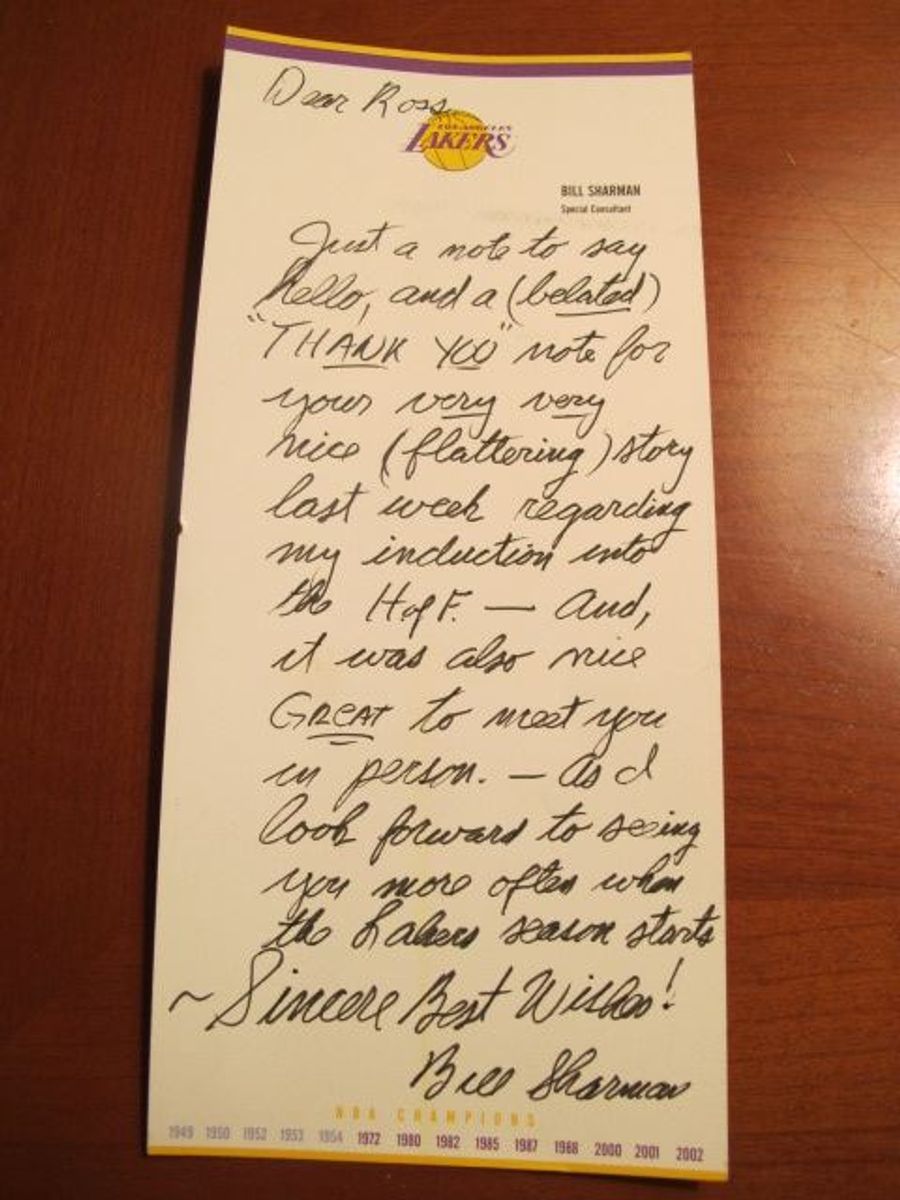 Dear Ross
LOS ANGELES
LAKERS
BILL SHARMAN
Special Consultant
Just a note to say
hello, and a (belated)
"THANK YOU" note for
your very very
nice (flattering) story
last week regarding
my induction into
the H.of F. — And,
it was also nice
GREAT to meet you
in person. — As I
look forward to seeing
you more often when
the Lakers season starts
~ Sincere Best Wishes!
Bill Sharman
NBA CHAMPIONS
1949 1950 1952 1953 1954 1972 1980 1982 1985 1987 1988 2000 2001 2002